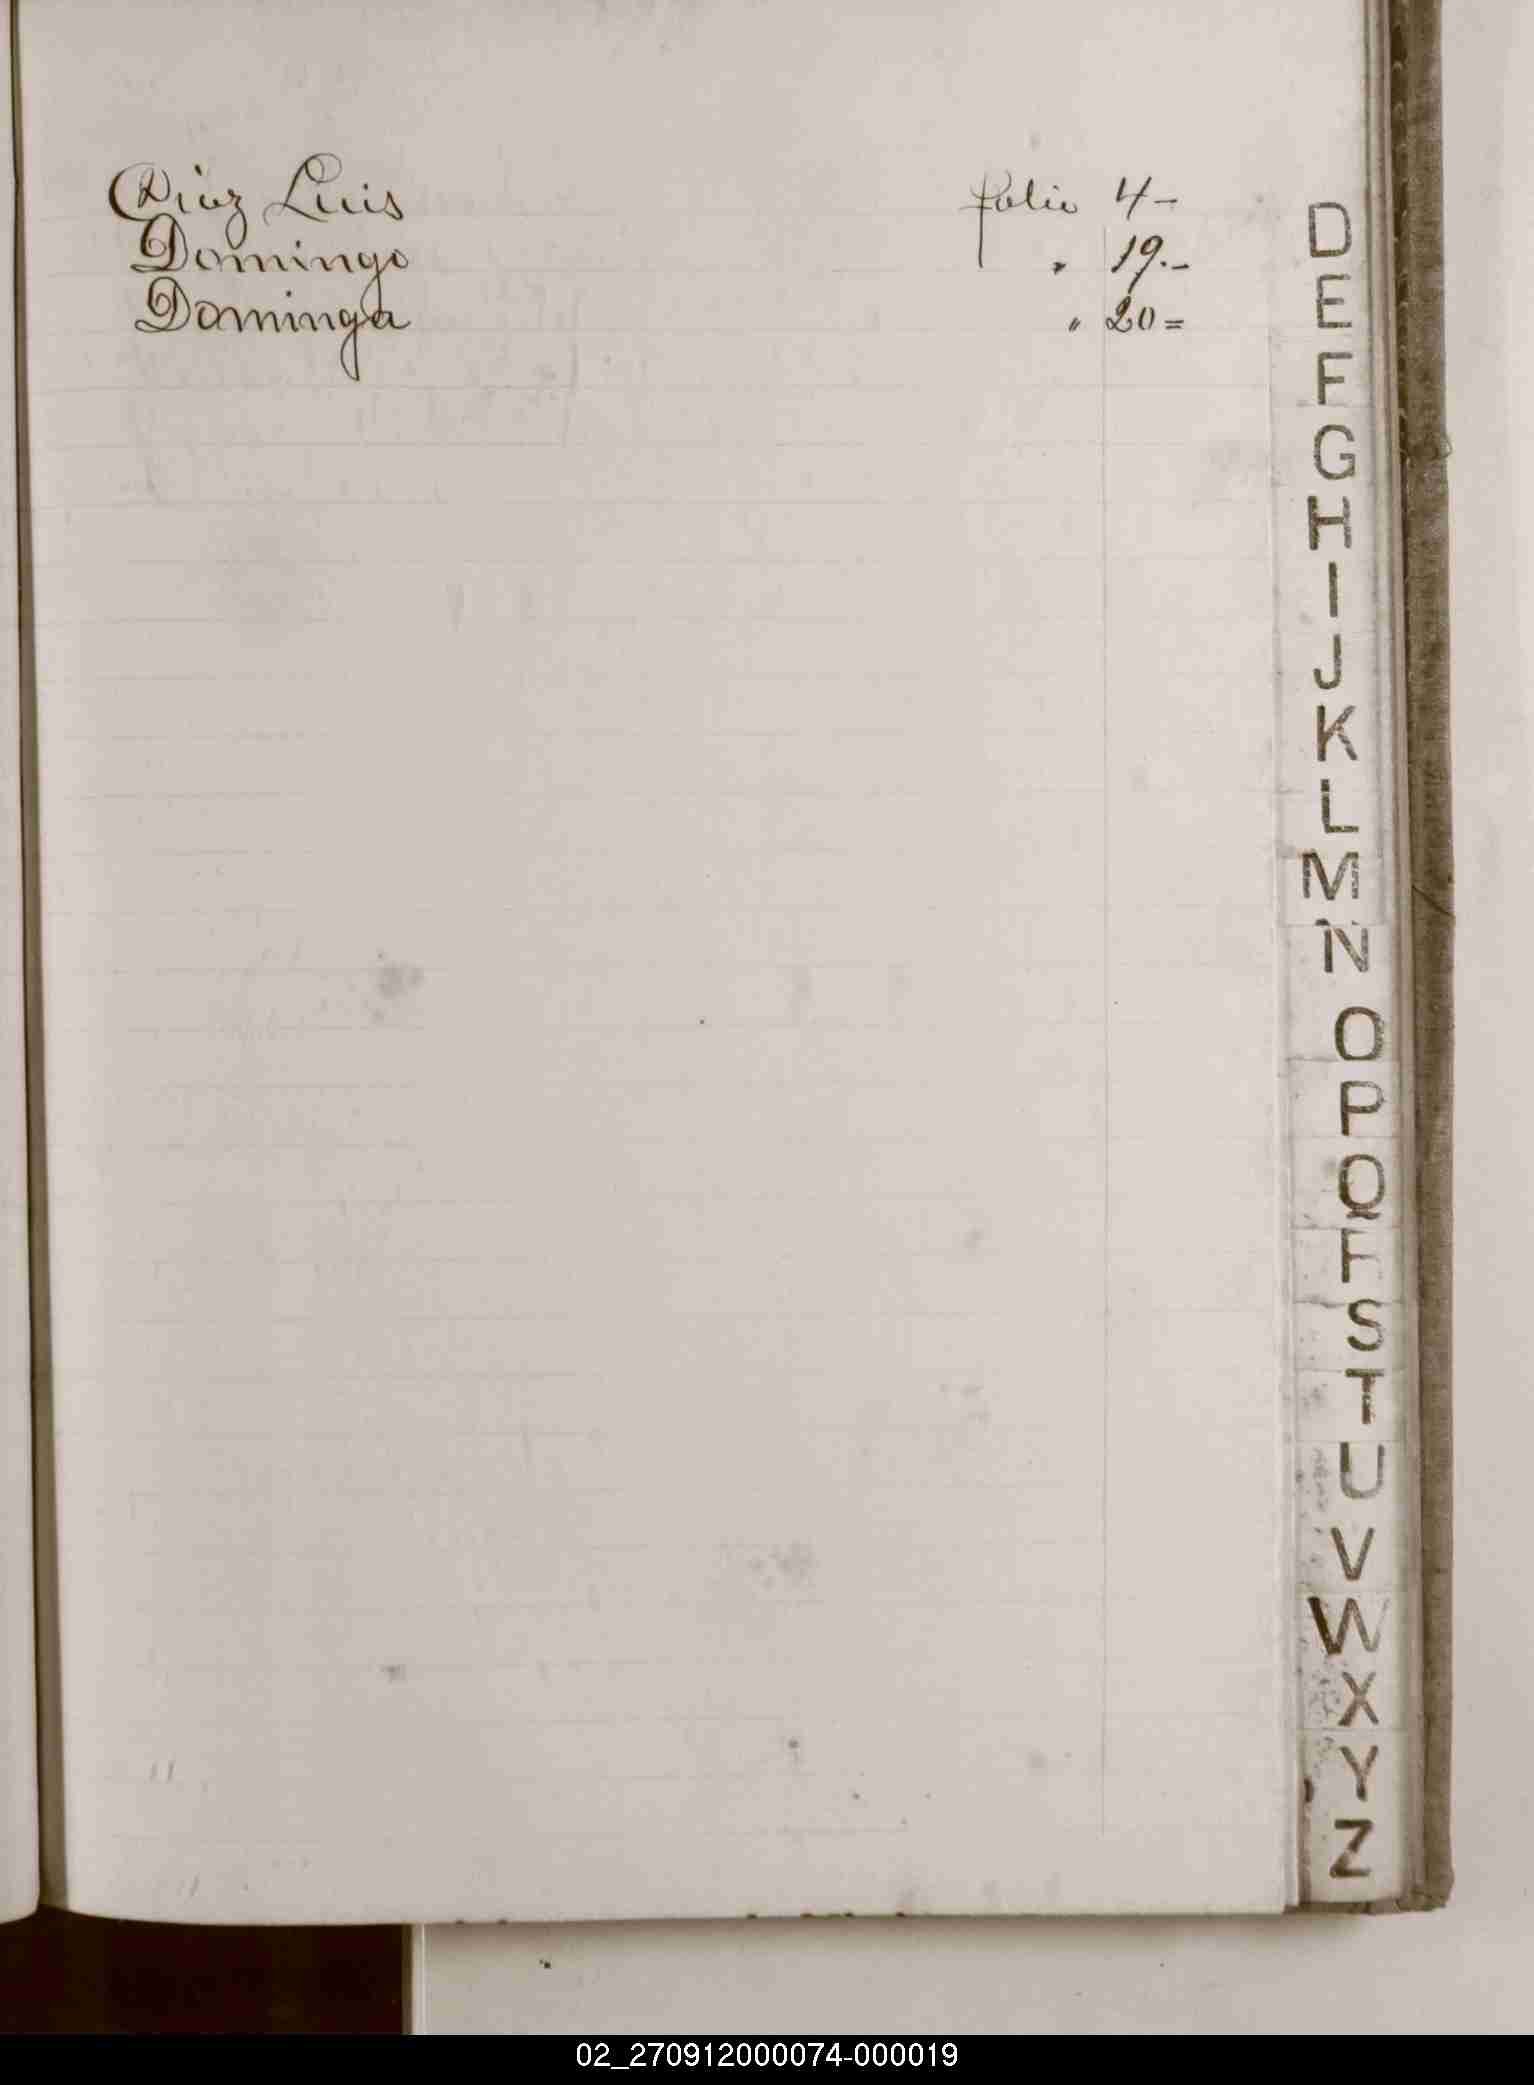 Diaz Luis folio 4-
Domingo " 19.-
Dominga " 20=
D
E
F
G
H
I
J
K
L
M
N
O
P
Q
R
S
T
U
V
W
X
Y
Z
02_270912000074-000019